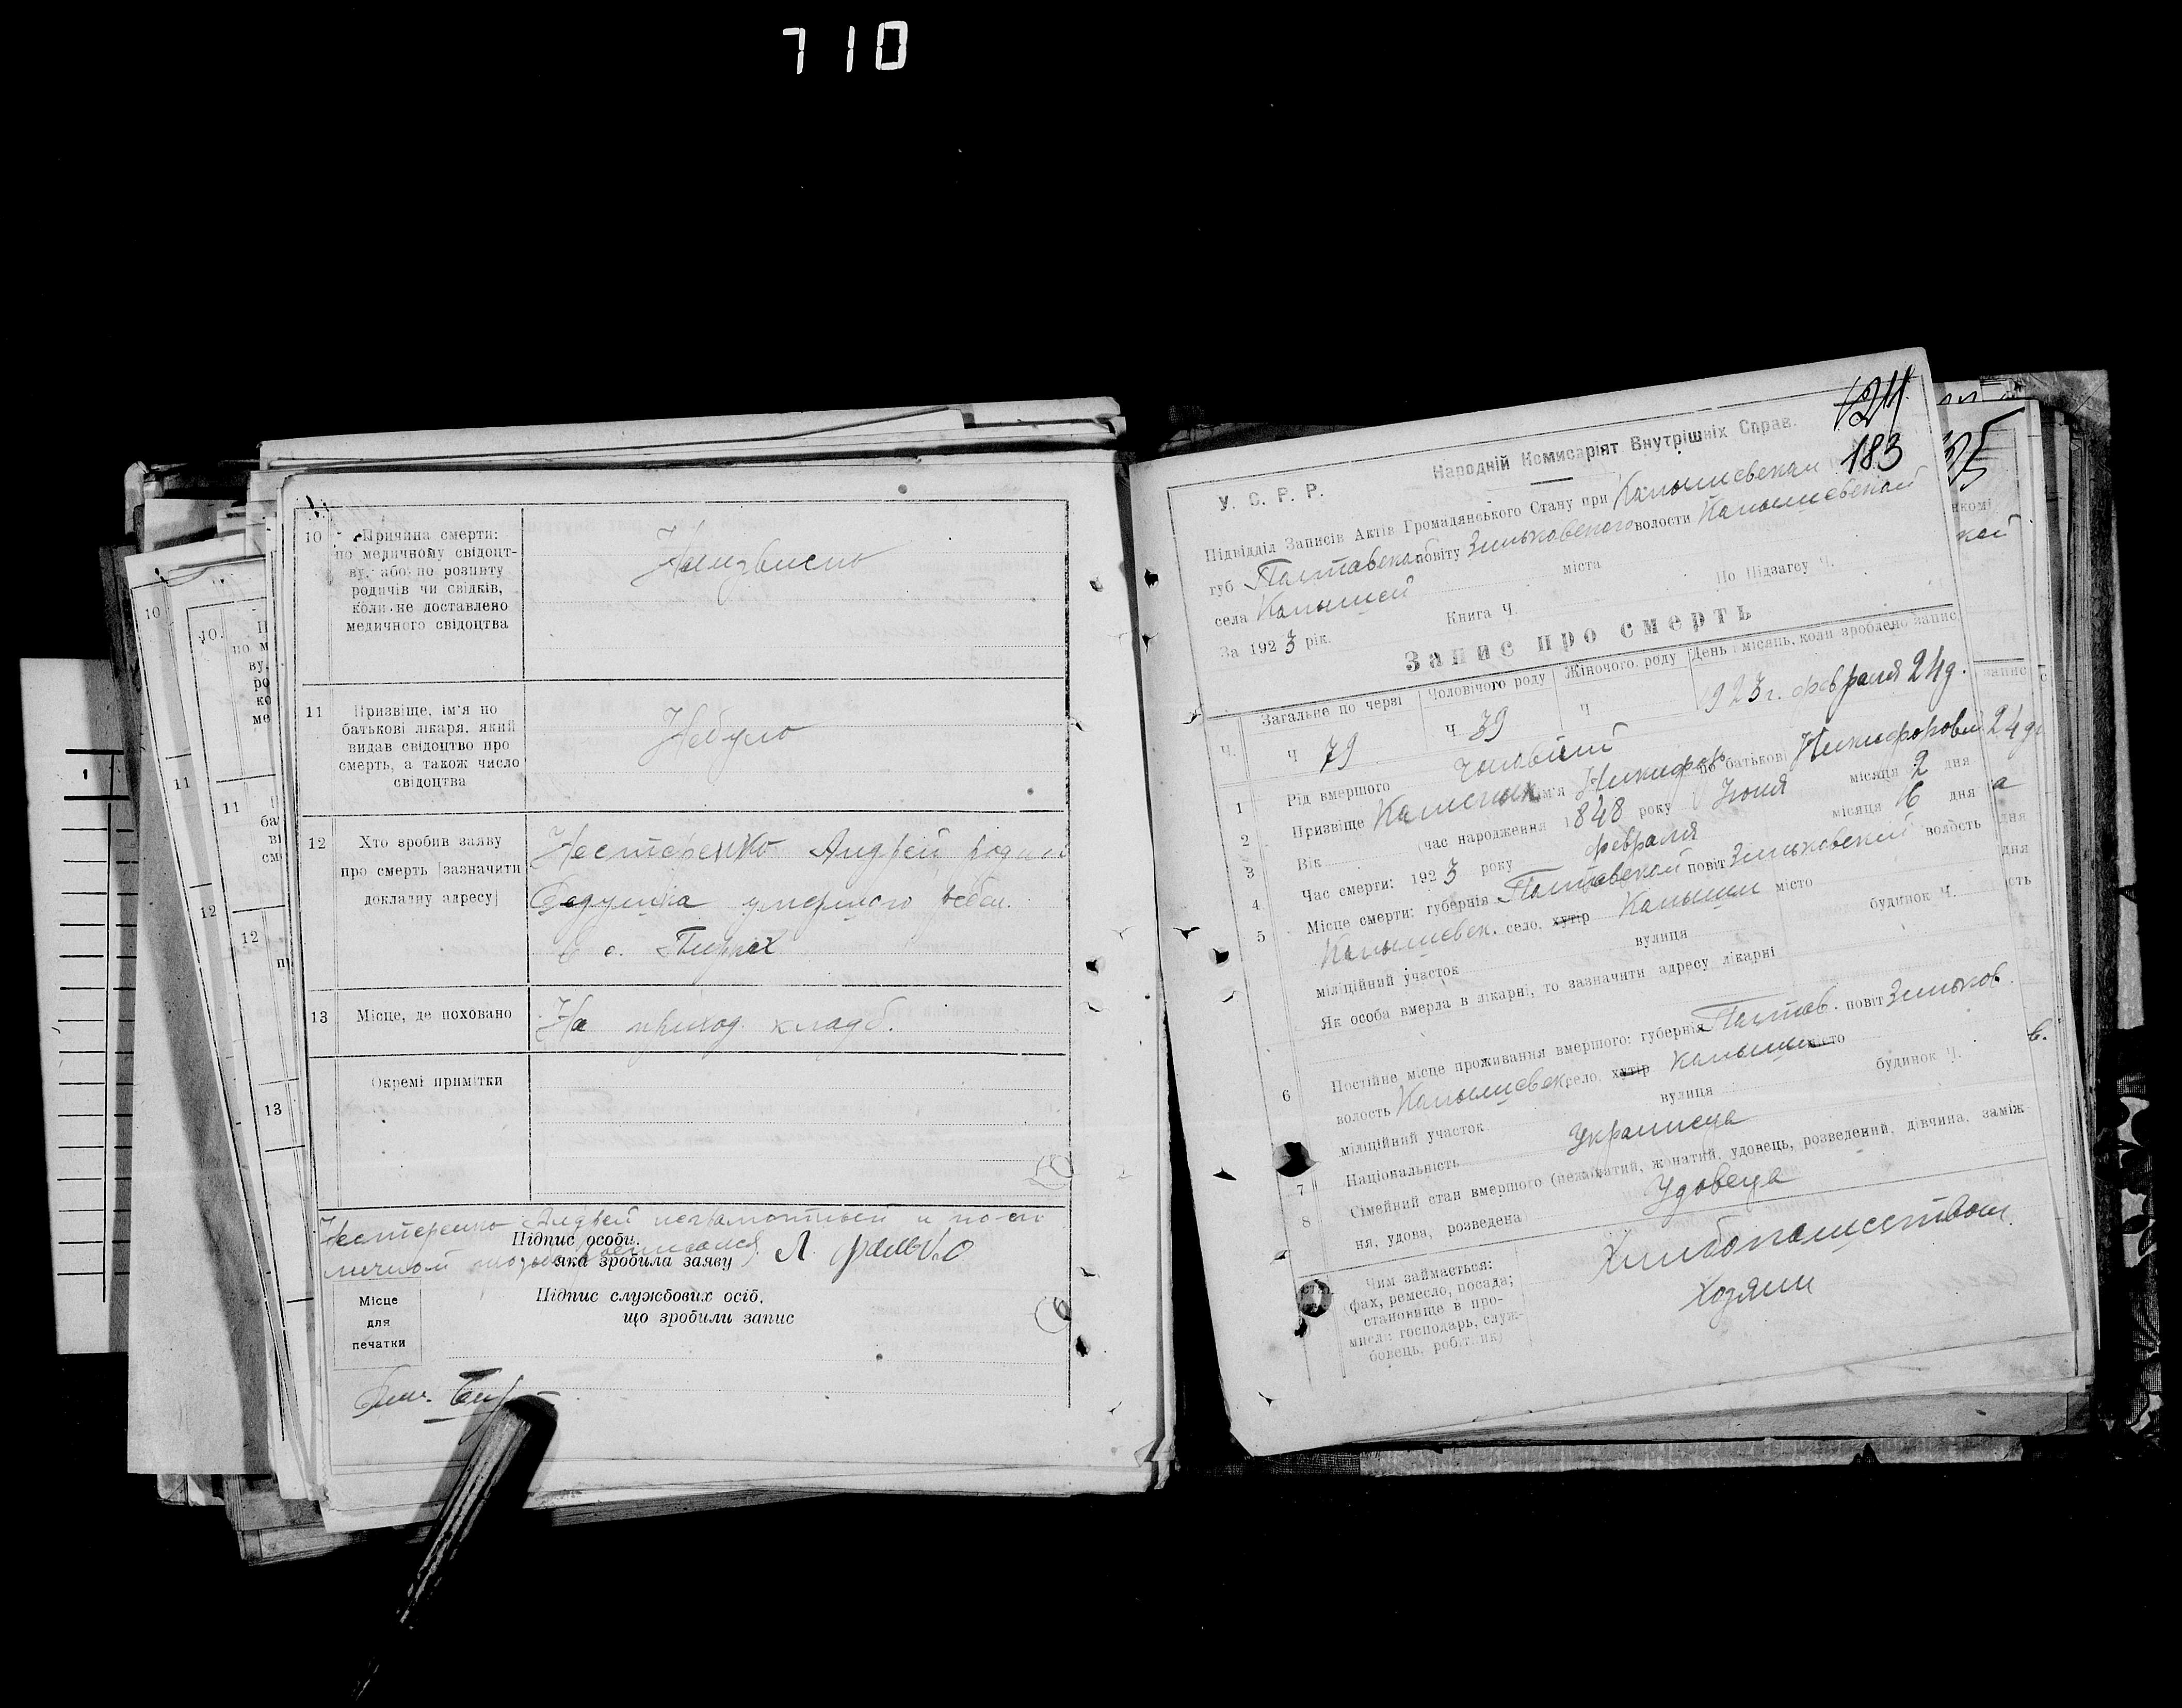 710
10
Причина смерти:
по медичному свідоцт-
ву, або по розпиту
родичів чи свідків,
коли не доставлено
медичного свідоцтва
11
Призвіще, ім'я по
батькові лікаря, який
видав свідоцтво про
смерть, а також число
свідоцтва
Небуло
12
Хто зробив заяву
про смерть (зазначити
докладну адресу)
Нестеренко Андрей
Дедушка умершого
в с.
13
Місце, де поховано
На приход. кладб.
Окремі примітки
Нестеренко Андрей неграмотный и по его
Підпис особи,
личной расписался
яка зробила заяву
Місце
для
печатки
Підпис службових осіб,
що зробили запис
10
11
12
10.
11
12
13
124
183
У. С. Р. Р.
Народній Комисаріят Внутрішніх Справ.
Підвідділ Записів Актів Громадянського Стану при Камышевском
губ Полтавской повіту Зиньковского волости Камышевской
села Камышей міста По Підзагсу Ч.
За 1923 рік. Книга Ч.
Запис про смерть
Ч.
Загальне по черзі
Чоловічого роду
Жіночого роду
День і місяць, коли зроблено запис
Ч 79
Ч 39
Ч
1923 г. февраля 24 д.
1 Рід вмершого Чоловічий
2 Призвіще ім'я Никифор по батькові Никифорович
3 Вік (час народження 1848 року Июня місяця 2 дня
4 Час смерти: 1923 року февраля місяця 16 дня
5 Місце смерти: губернія Полтавской повіт Зиньковский волость
Камышевск. село, хутір Камыши місто
міліційний участок вулиця будинок Ч.
Як особа вмерла в лікарні, то зазначити адресу лікарні
6 Постійне місце проживання вмершого: губернія Полтав. повіт Зиньков.
волость Камышевск село, хутір Камыши місто
міліційний участок вулиця будинок Ч.
7 Національність Украинець
8 Сімейний стан вмершого (нежонатий, жонатий, удовець, розведений, дівчина, заміж
ня, удова, розведена) Удовець
Чим займається:
(фах, ремесло, посада;
становище в про-
мислі: господарь, служ-
бовець, робітник)
Хлибопашеством
хозяин